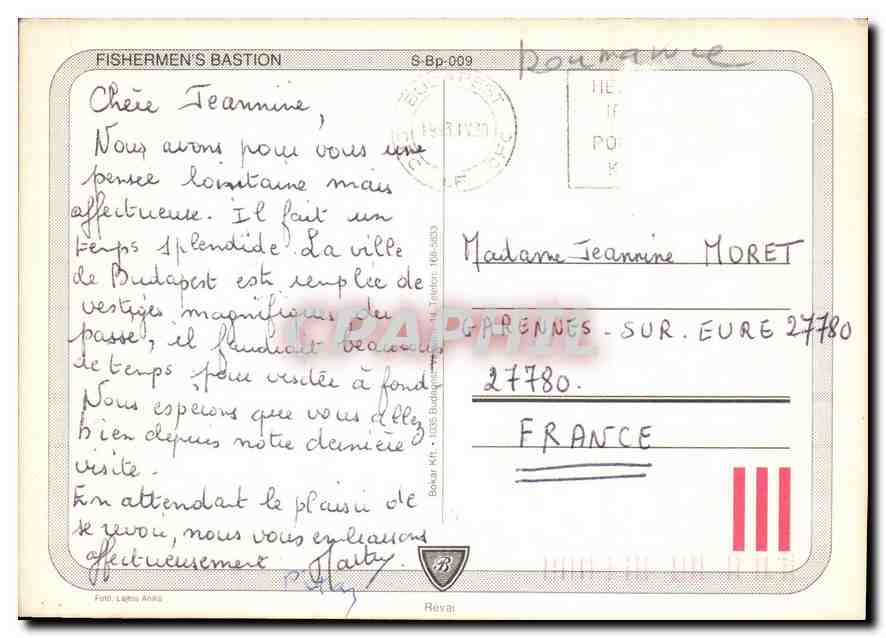 FISHERMEN'S BASTION
S-Bp-009
Roumanie
Chère Jeannine,
Nous avons pour vous une
pensée lointaine mais
affectueuse. Il fait un
temps splendide. La ville
de Budapest est remplie de
vestiges magnifiques du
passe, il faudrait beaucoup
de temps pour visitée à fond.
Nous esperons que vous allez
bien depuis notre dernière
visite.
En attendant le plaisir de
se revoir, nous vous embrassons
affectueusement
BUDAPEST
Madame Jeannine MORET
GARENNES - SUR. EURE 27780
27780.
FRANCE
Bokar Kft. • 1035 Budapest, Telefon: 168-5833
CPAPHIL
B
Révai
Fotó: Lajtos Anikó